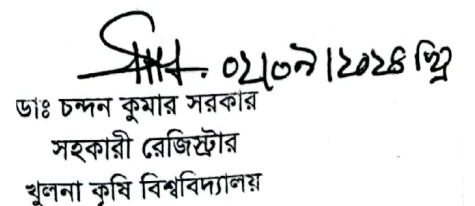 ০২/০৯/২০২৪ খ্রি
ডাঃ চন্দন কুমার সরকার
সহকারী রেজিস্ট্রার
খুলনা কৃষি বিশ্ববিদ্যালয়